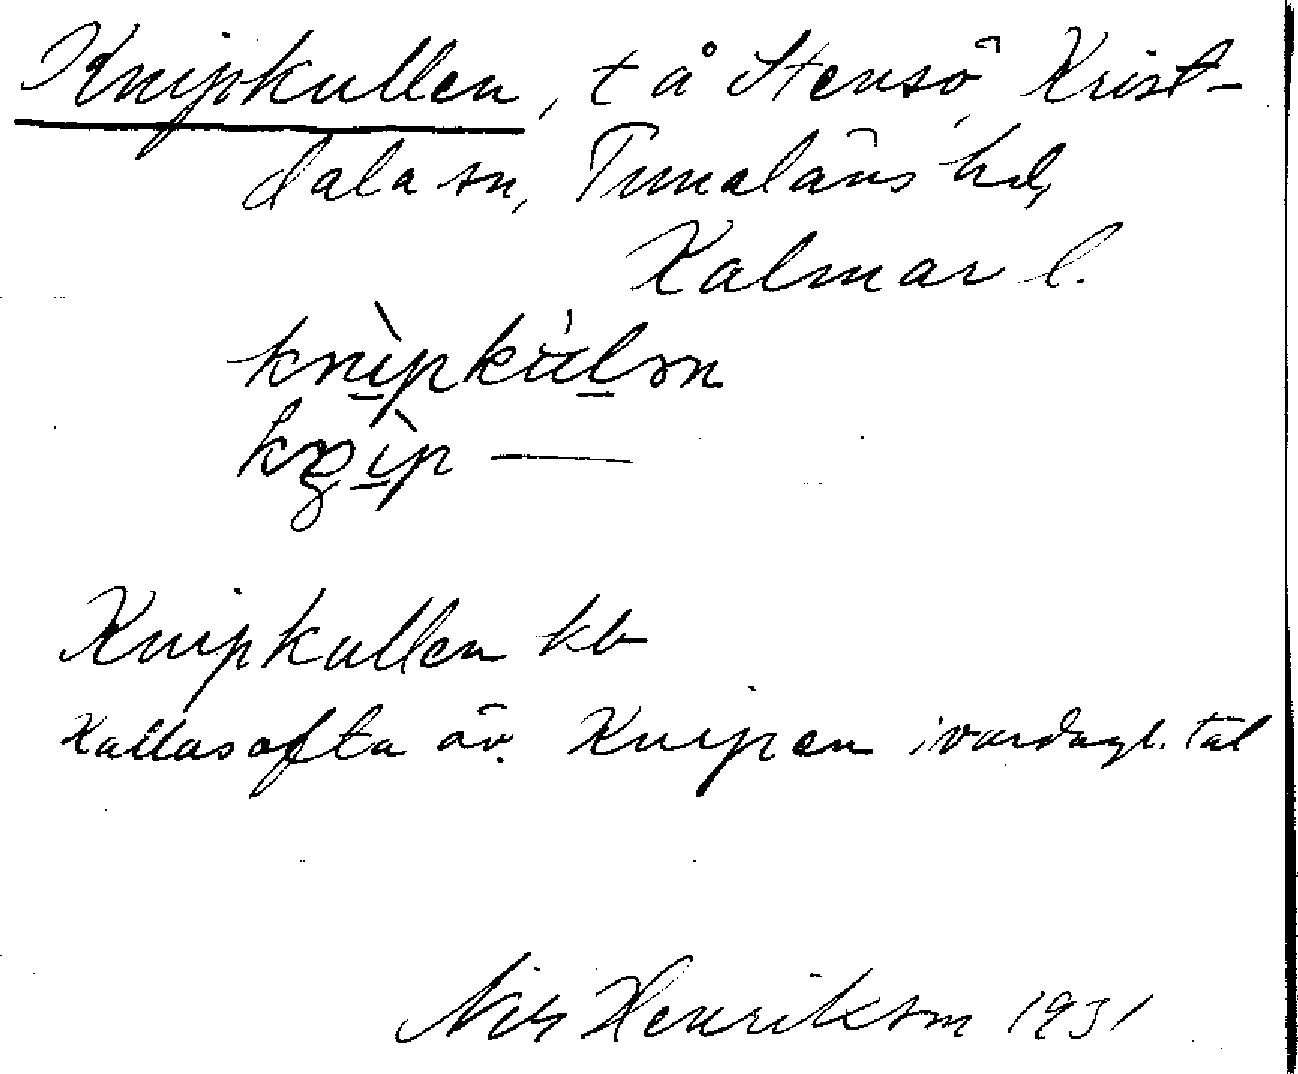 Knipkullen, t å Stensö, Krist-
dala sn, Tunaläns hd,
Kalmar l.
knìpkúlən
kn̥ìp —
Knipkullen kb
Kallas ofta äv. Knipen i vardagl. tal
Nils Henriksson 1931